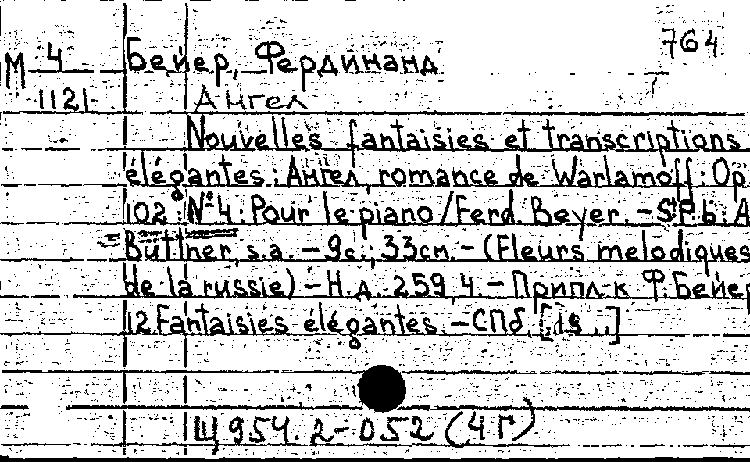 764
М 4 Бейер, Фердинанд
1121 Ангел
Nouvelles fantaisies et transcriptions
élégantes: Ангел, romance de Warlamoff: Op
102: № 4: Pour le piano / Ferd. Beyer. – S.P.b.: A
Büttner, s.a. – 9с.; 33см. – (Fleurs melodiques
de la russie) – Н.д. 259,4. – Припл. к Ф. Бейер
12 Fantaisies élégantes. – СПб, [18 ..]
Щ 954.2-052 (4 Г)